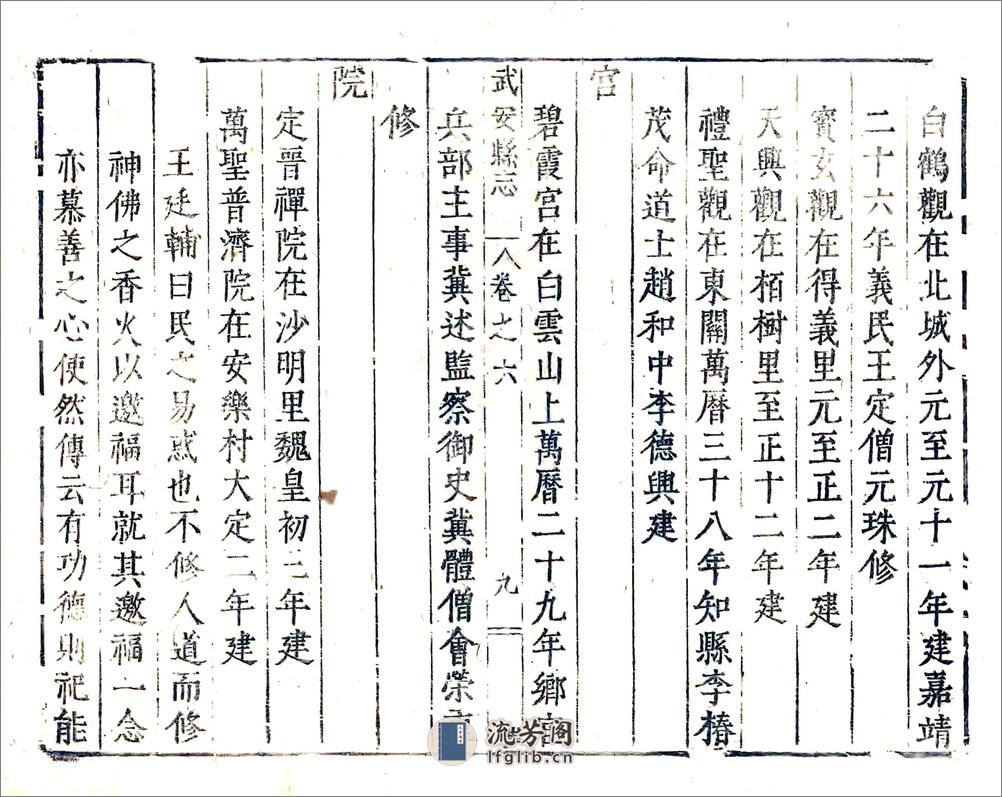 白鶴觀在北城外元至元十一年建嘉靖
二十六年義民王定僧元珠修
寳玄觀在得義里元至正二年建
天興觀在栢樹里至正十二年建
禮聖觀在東關萬曆三十八年知縣李椿
茂命道士趙和中李德興建
宮
碧霞宮在白雲山上萬曆二十九年鄉官
武安縣志 卷之六 九
兵部主事冀述監察御史冀體僧會榮
修
院
定晉禪院在沙明里魏皇初三年建
萬聖普濟院在安樂村大定二年建
王廷輔曰民之易惑也不修人道而修
神佛之香火以邀福耳就其邀福一念
亦慕善之心使然傳云有功德則祀能
流芳閣
lfglib.cn